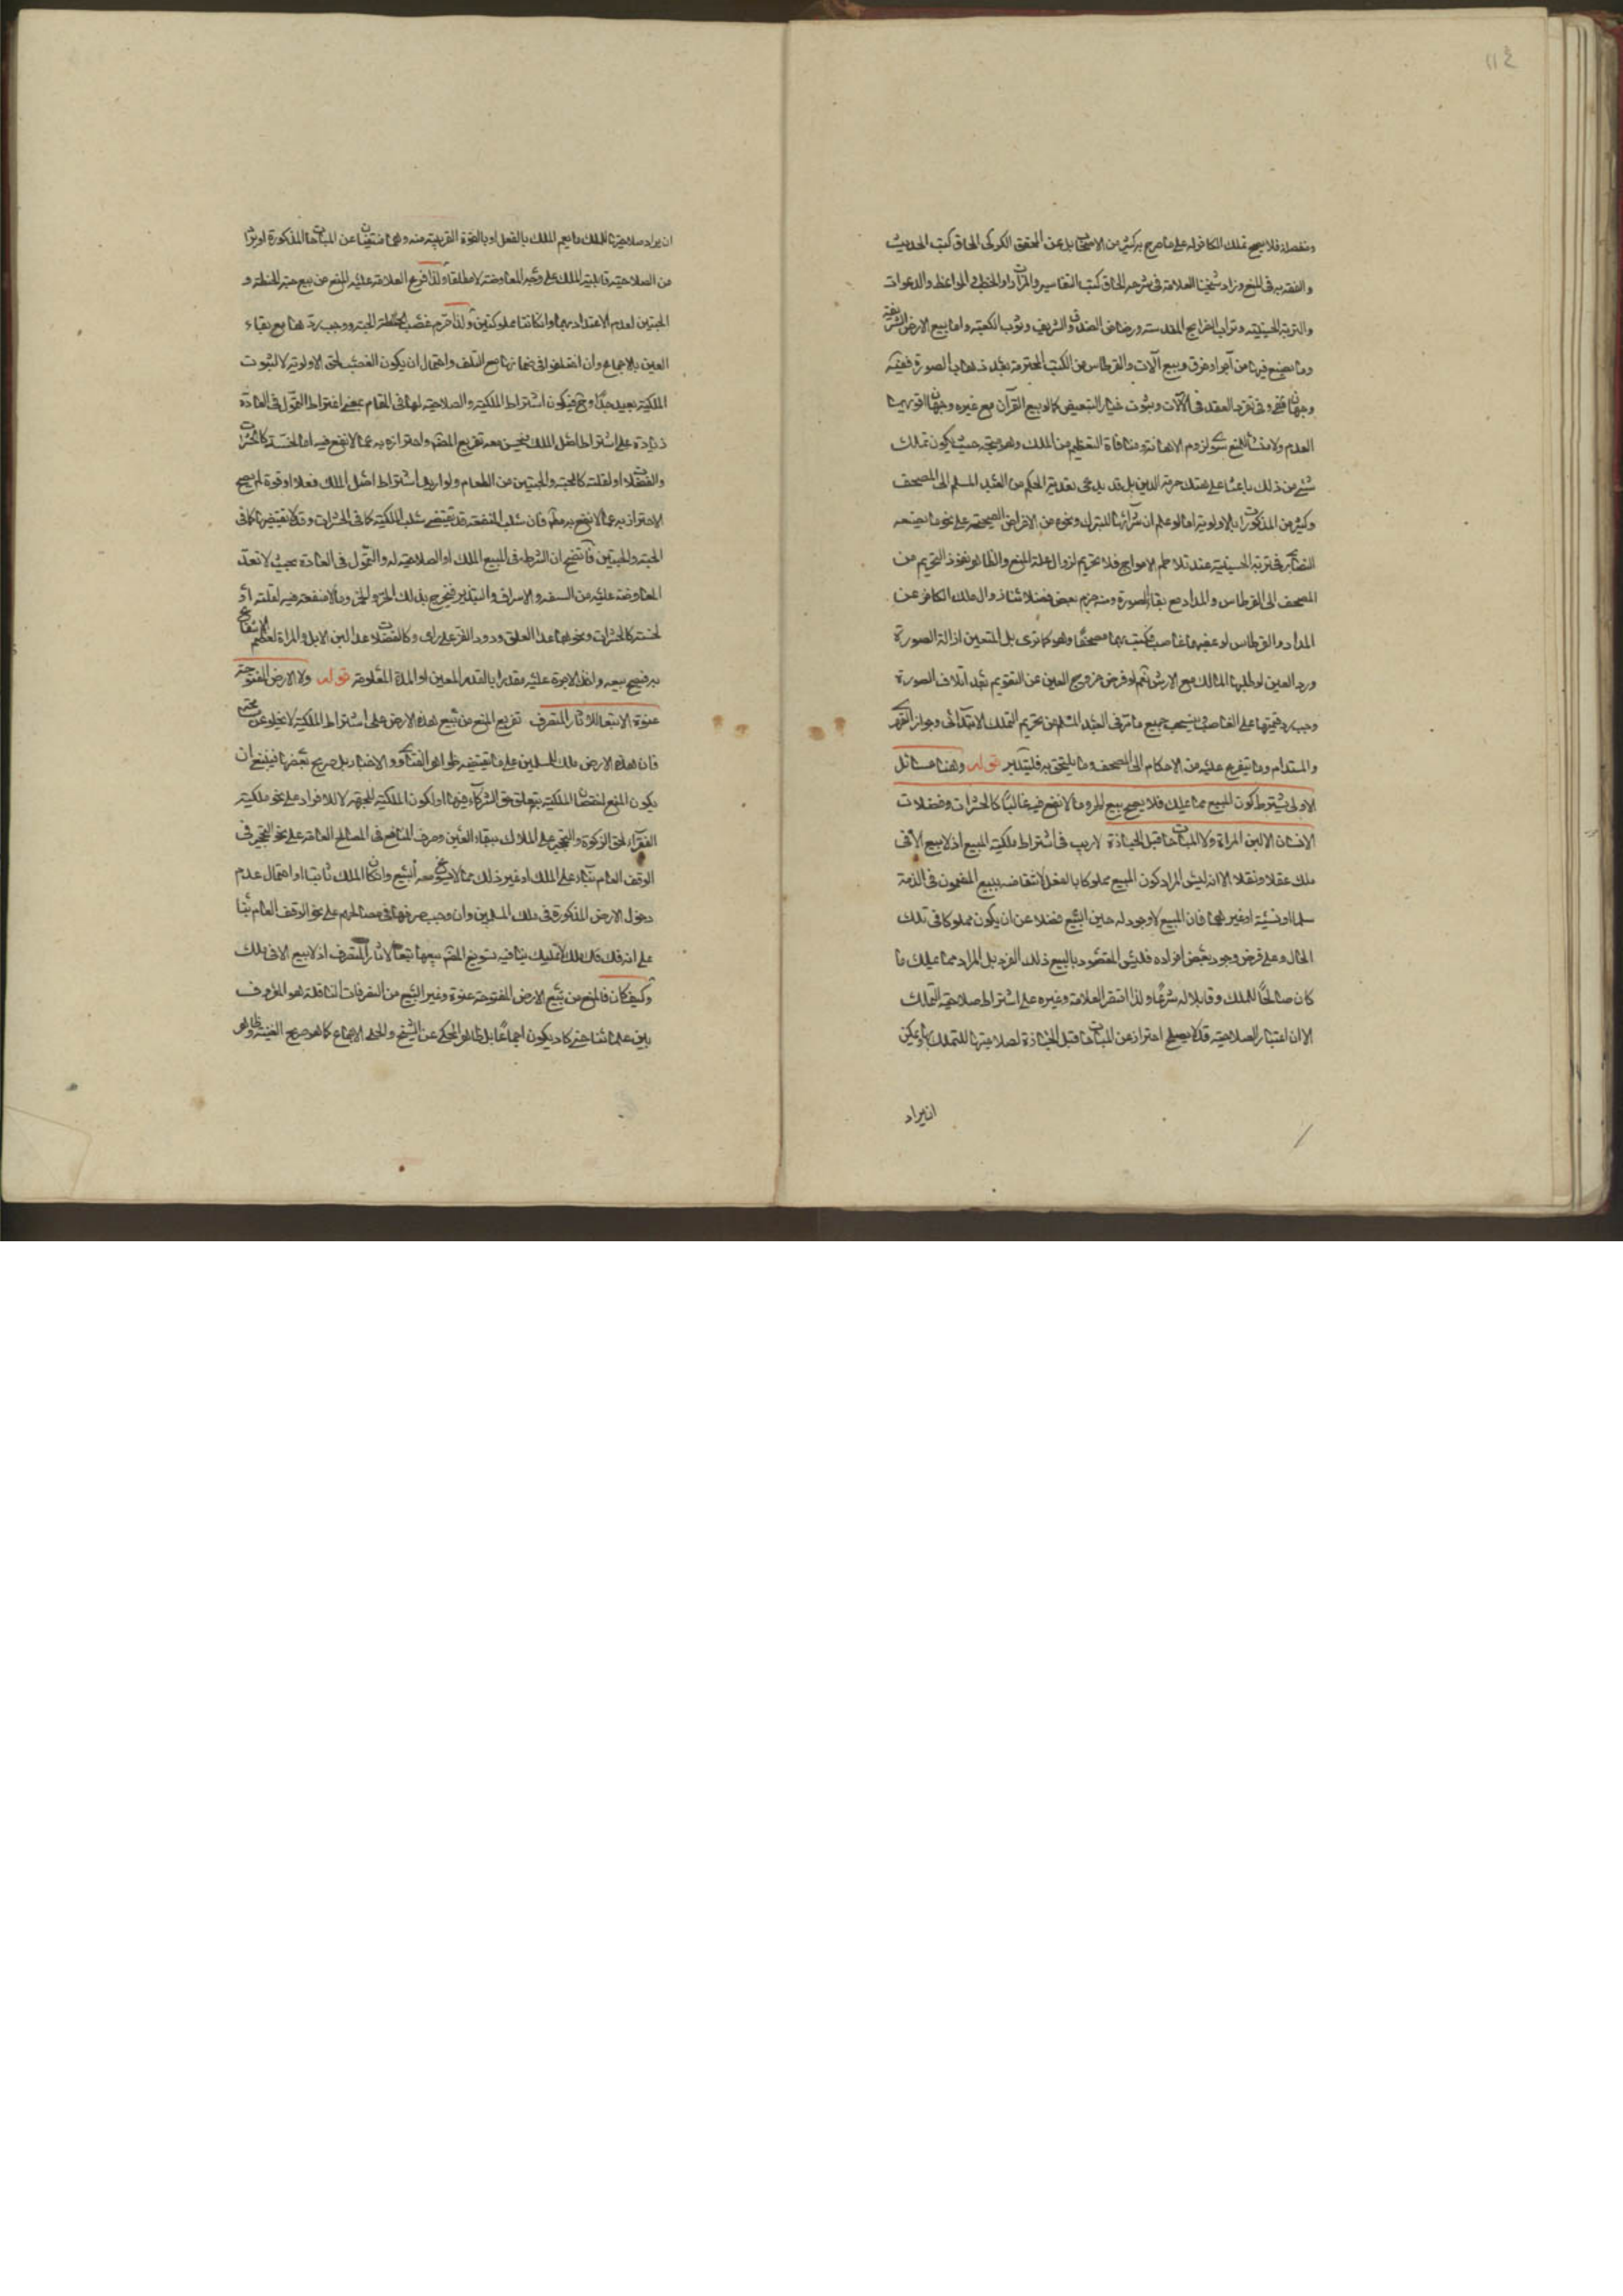 ١١٤
ومنفصلة فلا يصح تملك الكافر له على ما صرح به كثير من الاصحاب بل عن المحقق الكركى الحاق كتب الحديث
والفقه به فى المنع وزاد شيخنا العلامة فى شرحه الحاق كتب التفاسير والمزارات والخطب والمواعظ والدعوات
والتربة الحسينية وتراب الضرايح المقدسة ورضاض الصندوق الشريف وثوب الكعبة واما بيع الارض الشريفة
وما يصنع فيها من آجر او خزف وبيع آلات والقرطاس من الكتب المحترمة بعد ذهاب الصورة ففيه
وجهان وفى تفرد العقد فى الآلات وثبوت خيار التبعيض كما لو بيع القرآن مع غيره وجهان اقويهما
العدم ولا منشأ للمنع سوى لزوم الاهانة ومنافاة التعظيم من الملك وهو متجه حيث يكون تملك
شئ من ذلك باعثا على هتك حرمة الدين بل قد يدعى تعدية الحكم من العبد المسلم الى المصحف
وكثير من المذكورات بالاولوية اما لو علم ان شرائها للتبرك ونحوه من الاغراض الصحيحة على نحو ما يصنعه
النصارى فى تربة الحسينية عند تلاطم الامواج فلا تحريم لزوال علة المنع والظاهر نفوذ التحريم من
المصحف الى القرطاس والمداد مع بقاء الصورة ومنه جزم بعض فضلائنا زوال ملك الكافر عن
المداد والقرطاس لو غصبهما غاصب فكتب بهما مصحفا وهو كما ترى بل المتعين ازالة الصورة
ورد العين لو طلبها المالك مع الارش نعم لو فرض خروج العين عن التقويم بعد اتلاف الصورة
وجب رد قيمتها على الغاصب وينسحب جميع ما مر فى العبد المسلم من تحريم التملك الابتدائى وجواز القهرى
والمستدام وما يتفرع عليه من الاحكام الى المصحف وما يلتحق به فليتدبر قوله وهنا مسائل
الاولى يشترط كون المبيع مما يملك فلا يصح بيع الحر وما لا نفع فيه غالبا كالحشرات وفضلات
الانسان الا لبن المراة ولا المباحات قبل الحيازة لا ريب فى اشتراط ملكية المبيع اذ لا بيع الا فى
ملك عقلا ونقلا الا انه ليس المراد كون المبيع مملوكا بالفعل لانتقاضه ببيع المضمون فى الذمة
سلما او نسيئة او غيرهما فان المبيع لا وجود له حين البيع فضلا عن ان يكون مملوكا فى تلك
الحال وعلى فرض وجود بعض افراده فليس المقصود بالبيع ذلك الفرد بل المراد مما يملك ما
كان صالحا للملك وقابلا له شرعا ولذا اقتصر العلامة وغيره على اشتراط صلاحية التملك
الا ان اعتبار الصلاحية قد لا يصلح احترازا عن المباحات قبل الحيازة لصلاحيتها للتملك ويمكن
ان يراد
ان يراد صلاحيتها للملك ما يعم الملك بالفعل او بالقوة القريبة منه وهما منتفيان عن المباحات المذكورة او يراد
من الصلاحية قابلية الملك على وجه المعاوضة لا مطلقا ولذا فرع العلامة عليه المنع من بيع حبة الحنطة و
الحبتين لعدم الاعتداد بهما وان كانتا مملوكتين ولذا حرم غصب الحنطة الحبة ووجب ردها مع بقاء
العين بالاجماع وان اختلفوا فى ضمانها مع التلف واحتمال ان يكون الغصب لحق الاولوية لا لثبوت
الملكية بعيد جدا وح فيكون اشتراط الملكية والصلاحية لها فى المقام بمعنى اشتراط التمول فى العادة
زيادة على اشتراط اصل الملك فيحسن معه تفريع المصنف واحترازه به عما لا نفع فيه اما لخسته كالحشرات
والفضلات او لقلته كالحبة والحبتين من الطعام ولو اريد اشتراط اصل الملك فعلا او قوة لم يصح
الاحتراز به عما لا نفع به مطلقا فان سلب المنفعة قد يقتضى سلب الملكية كما فى الحشرات وقد لا يقتضيها كما فى
الحبة والحبتين فاتضح ان الشرط فى المبيع الملك او الصلاحية له والتمول فى العادة بحيث لا تعد
المعاوضة عليه من السفه والاسراف والتبذير فيخرج بذلك الحر والخمر وما لا منفعة فيه لقلته او
لخسته كالحشرات ونحوها عدا العلق ودود القز على راى وكالفضلات عدا لبن الابل والمراة لعظم الانتفاع
به فيصح بيعه واخذ الاجرة عليه مقدرا بالقدر المعين او المدة المعلومة قوله ولا الارض المفتوحة
عنوة الا تبعا لآثار المتصرف تفريع المنع من بيع هذه الارض على اشتراط الملكية لا يخلو عن
فان هذه الارض ملك للمسلمين على ما يقتضيه ظواهر الفتاوى والاخبار بل صريح بعضها فينبغى ان
يكون المنع لنقصان الملكية بتعلق حق الشركاء فيها او لكون الملكية للجهة لا للافراد على نحو ملكية
الفقراء لحق الزكوة والتحجير على الملاك ببقاء العين وصرف المنافع فى المصالح العامة على نحو التحجير فى
الوقف العام بناء على الملك او غير ذلك مما لا يسوغ معه البيع وان كان الملك ثابتا او احتمال عدم
دخول الارض المذكورة فى ملك المسلمين وان وجب صرفها فى مصالحهم على نحو الوقف العام بناء
على انه فك ملك لا تمليك ينافيه تسويغ المصنف بيعها تبعا لآثار المتصرف اذ لا بيع الا فى ملك
وكيف كان فالمنع من بيع الارض المفتوحة عنوة وغير البيع من التصرفات الناقلة هو المعروف
بين علمائنا حتى كاد يكون اجماعا بل ظاهر المحكى عن الشيخ والحلى الاجماع كما هو صريح الغنية وظاهر